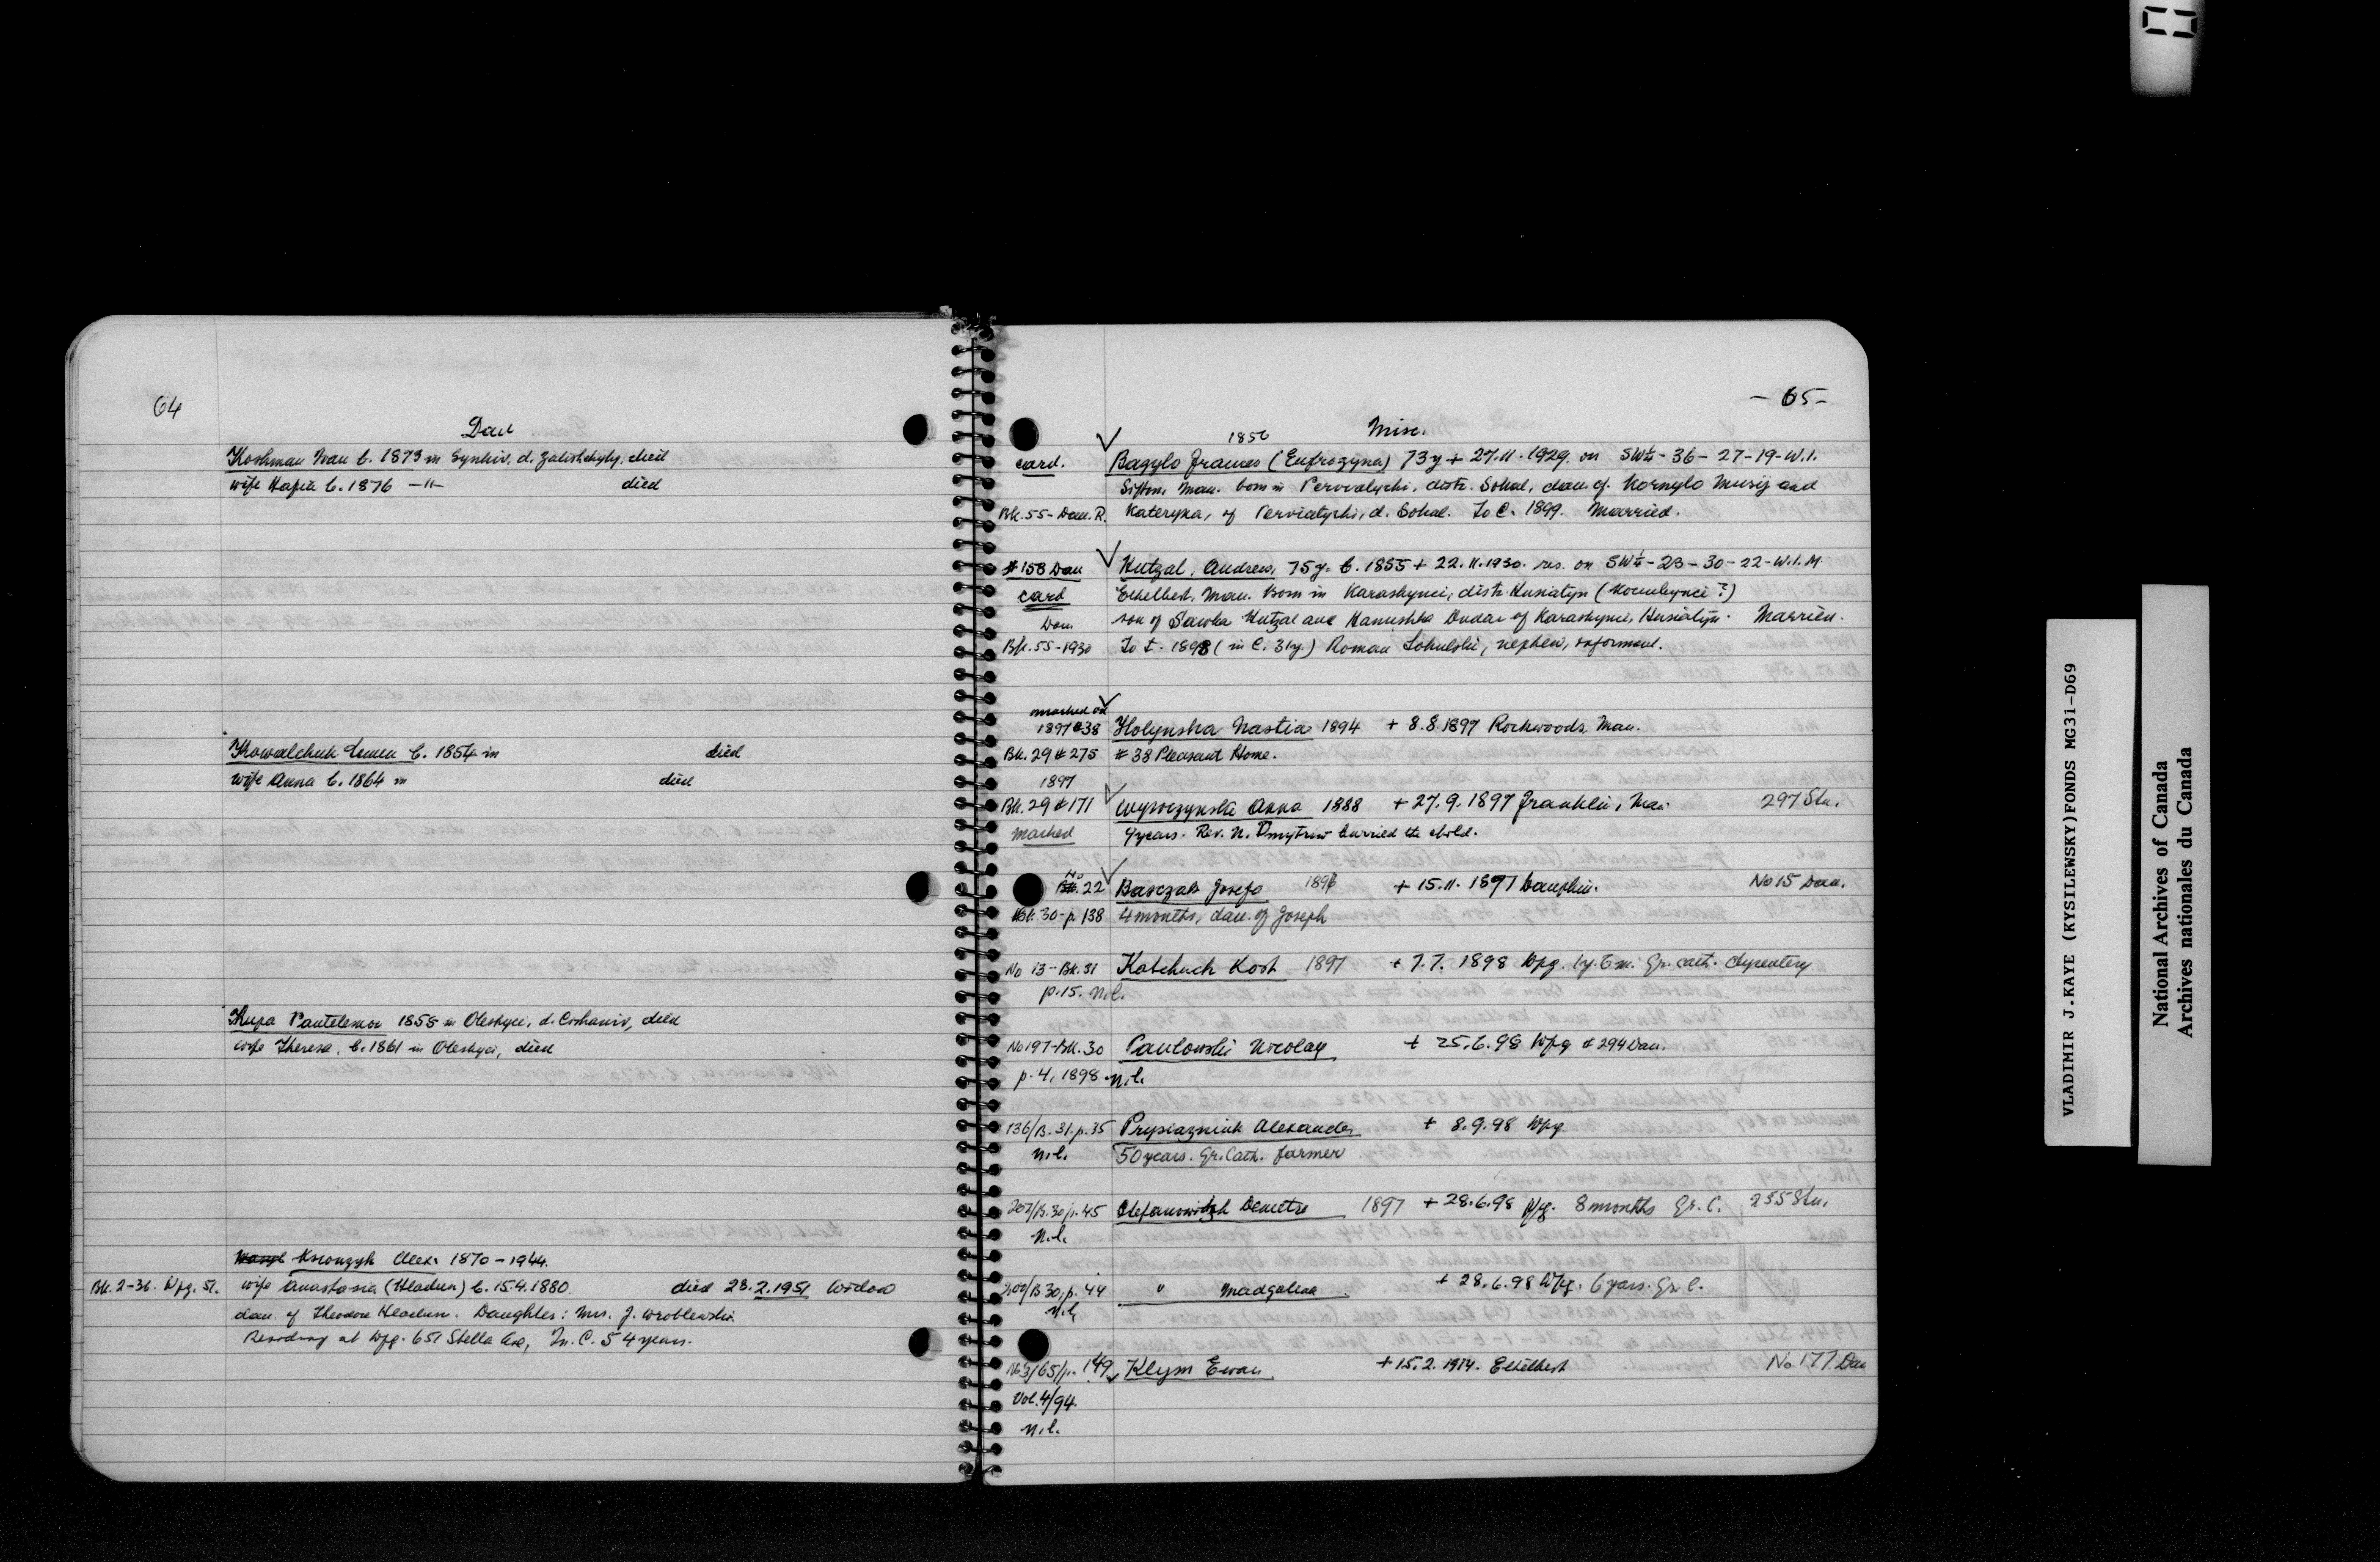 64
Dau
Koshman Ivan b. 1873 in Synkiv, d. Zalishchyky, died
wife Hafia b. 1876 -"- died
Kowalchuk Semen b. 1854 in died
wife Anna b. 1864 in died
Kupa Pantelemon 1855 in Oleshyci, d. Cishaniv, died
wife Theresa, b. 1861 in Oleshyci, died
Wasyl Ksionzyk Alex. 1870 - 1944.
Bk. 2-36. Wpg. 51. wife Anastasia (Hladun) b. 15.4.1880. died 28.2.1951 Widow
dau. of Theodore Hladun. Daughter: Mrs. J. Wroblewski.
Residing at Wpg. 651 Stella Ave, In C. 54 years.
- 65 -
Misc.
1856
card. Bagylo Frances (Eufrozyna) 73y + 27.11.1929. on SW¼-36-27-19-W.1.
Sifton, Man. born in Pervialychi, distr. Sokal, dau. of Kornylo Musij and
Bk. 55-Dau. R. Kateryna, of Perviatychi, d. Sokal. To C. 1899. Married.
#158 Dau Hutzal, Andrew, 75y. b. 1855 + 22.11.1930. res. on SW¼-23-30-22-W.1.M
card Ethelbert, Man. Born in Karashynci, distr. Husiatyn (Kociubynci?)
Dau. son of Sawka Hutzal and Hanushka Dudar of Karashynci, Husiatyn. Married.
Bk. 55-1930 To C. 1898 (in C. 31y.) Roman Sokulski, nephew, informant.
marked on
1897 #38 Holynska Nastia 1894 + 8.8.1897 Rockwoods, Man.
Bk. 29 #275 #38 Pleasant Home.
1897
Bk. 29 #171 Wyroczynska Anna 1888 + 27.9.1897 Franklin, Man. 297 Stu.
marked 9 years. Rev. N. Dmytriw burried the child.
No
Bk. 22 Basczak Josefa 1897 + 15.11.1897 Dauphin. No 15 Dau.
Bk. 30-p 138 4 months, dau. of Joseph
No 13-Bk. 31 Kabchuch Kost 1897 + 7.7.1898 Wpg. 1y. 6m. Gr. Cath. dysentery
p. 15. n.l.
No 197-Bk. 30 Pawlowski Nicolay + 25.6.98 Wpg #294 Dau.
p. 4, 1898. n.l.
136/B. 31. p. 35 Prysiazniuk Alexander + 8.9.98 Wpg
n.l. 50 years. Gr. Cath. farmer
202/B. 30 p. 45 Stefanowitzh Demetre 1897 + 28.6.98 Wpg. 8 months Gr. C. 255 Stu.
n.l.
202/B 30, p. 44 " Madgalina + 28.6.98 Wpg. 6 years. Gr. C.
n.l.
No 3/65/p. 149 Klym Ewan + 15.2.1914. Ethelbert No 177 Dau
Vol. 4/94.
n.l.
VLADIMIR J.KAYE (KYSILEWSKY)FONDS MG31-D69
National Archives of Canada
Archives nationales du Canada